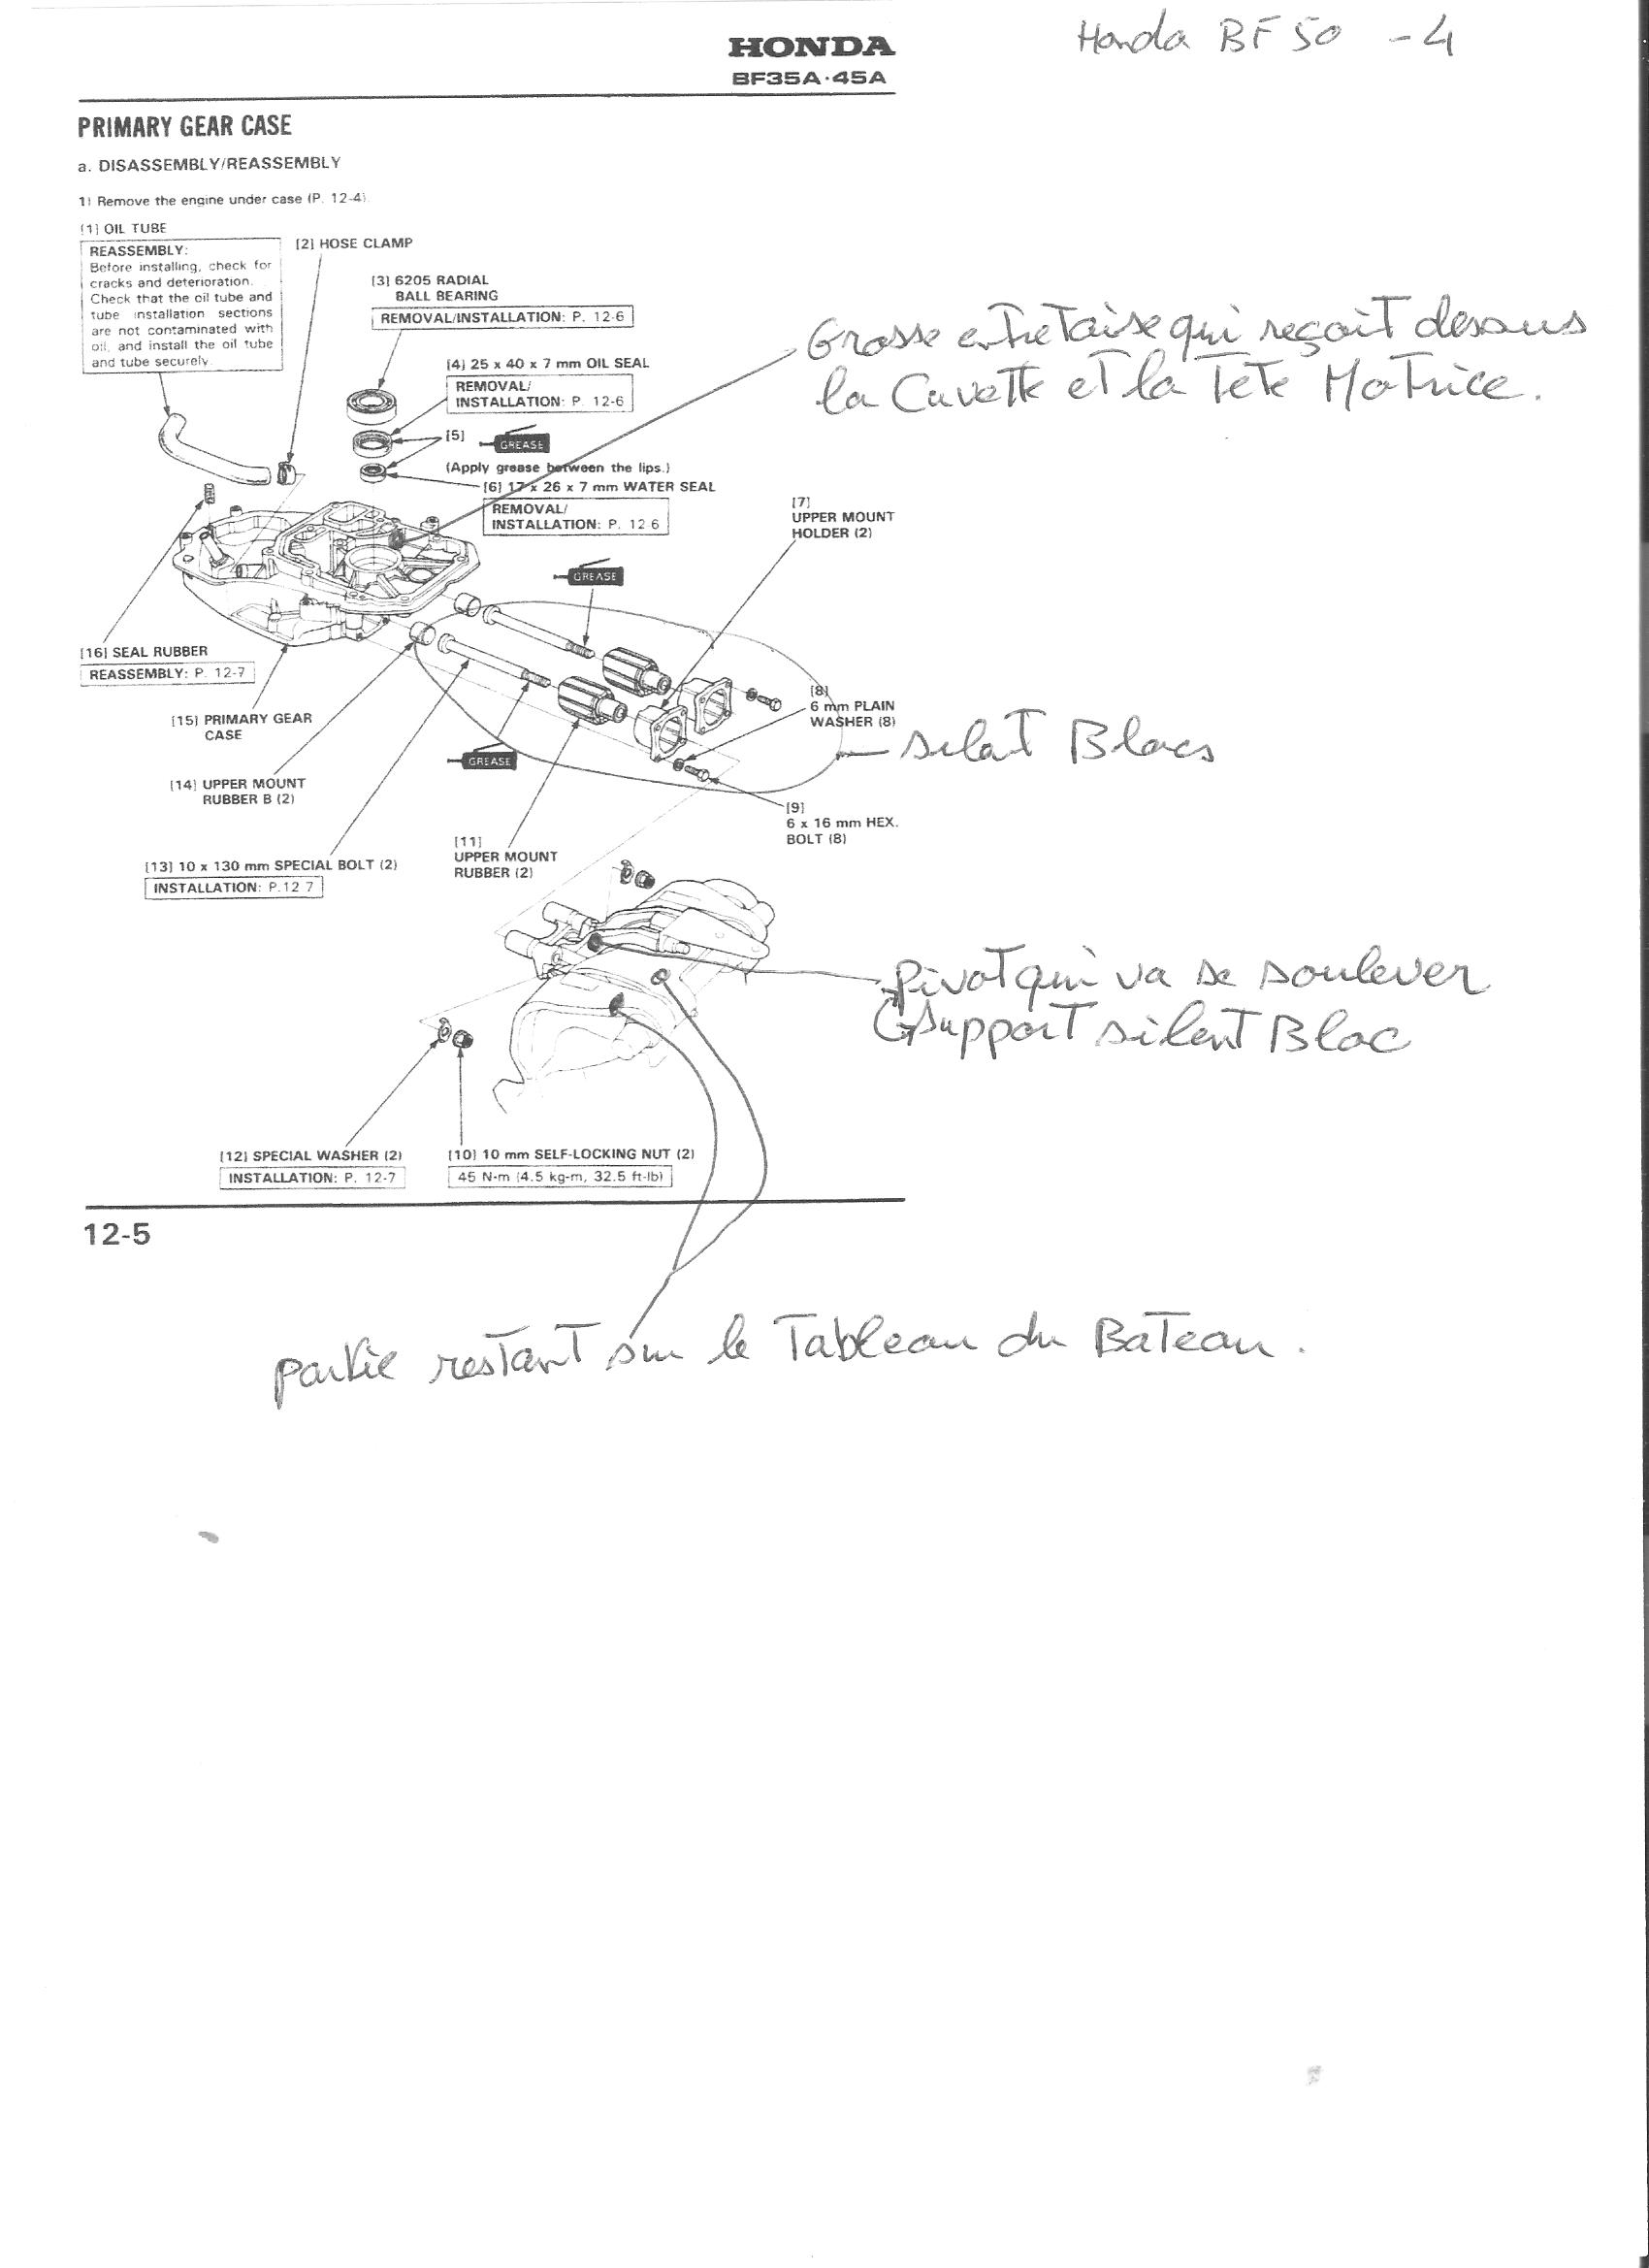 Honda BF 50 - 4
HONDA
BF35A·45A
PRIMARY GEAR CASE
a. DISASSEMBLY/REASSEMBLY
1) Remove the engine under case (P. 12-4).
[1] OIL TUBE
REASSEMBLY:
Before installing, check for
cracks and deterioration.
Check that the oil tube and
tube installation sections
are not contaminated with
oil, and install the oil tube
and tube securely.
[2] HOSE CLAMP
[3] 6205 RADIAL
BALL BEARING
REMOVAL/INSTALLATION: P. 12-6
[4] 25 x 40 x 7 mm OIL SEAL
REMOVAL/
INSTALLATION: P. 12-6
[5]
GREASE
(Apply grease between the lips.)
[6] 17 x 26 x 7 mm WATER SEAL
REMOVAL/
INSTALLATION: P. 12 6
Grosse entretaise qui reçoit dessous
la Cuvette et la Tete Motrice.
[7]
UPPER MOUNT
HOLDER (2)
GREASE
[16] SEAL RUBBER
REASSEMBLY: P. 12-7
[15] PRIMARY GEAR
CASE
[8]
6 mm PLAIN
WASHER (8)
silent Blocs
GREASE
[14] UPPER MOUNT
RUBBER B (2)
[9]
6 x 16 mm HEX.
BOLT (8)
[11]
UPPER MOUNT
RUBBER (2)
[13] 10 x 130 mm SPECIAL BOLT (2)
INSTALLATION: P.12 7
Pivot qui va se soulever
Support silent Bloc
[12] SPECIAL WASHER (2)
INSTALLATION: P. 12-7
[10] 10 mm SELF-LOCKING NUT (2)
45 N-m (4.5 kg-m, 32.5 ft-lb)
12-5
partie restant sur le Tableau du Bateau.